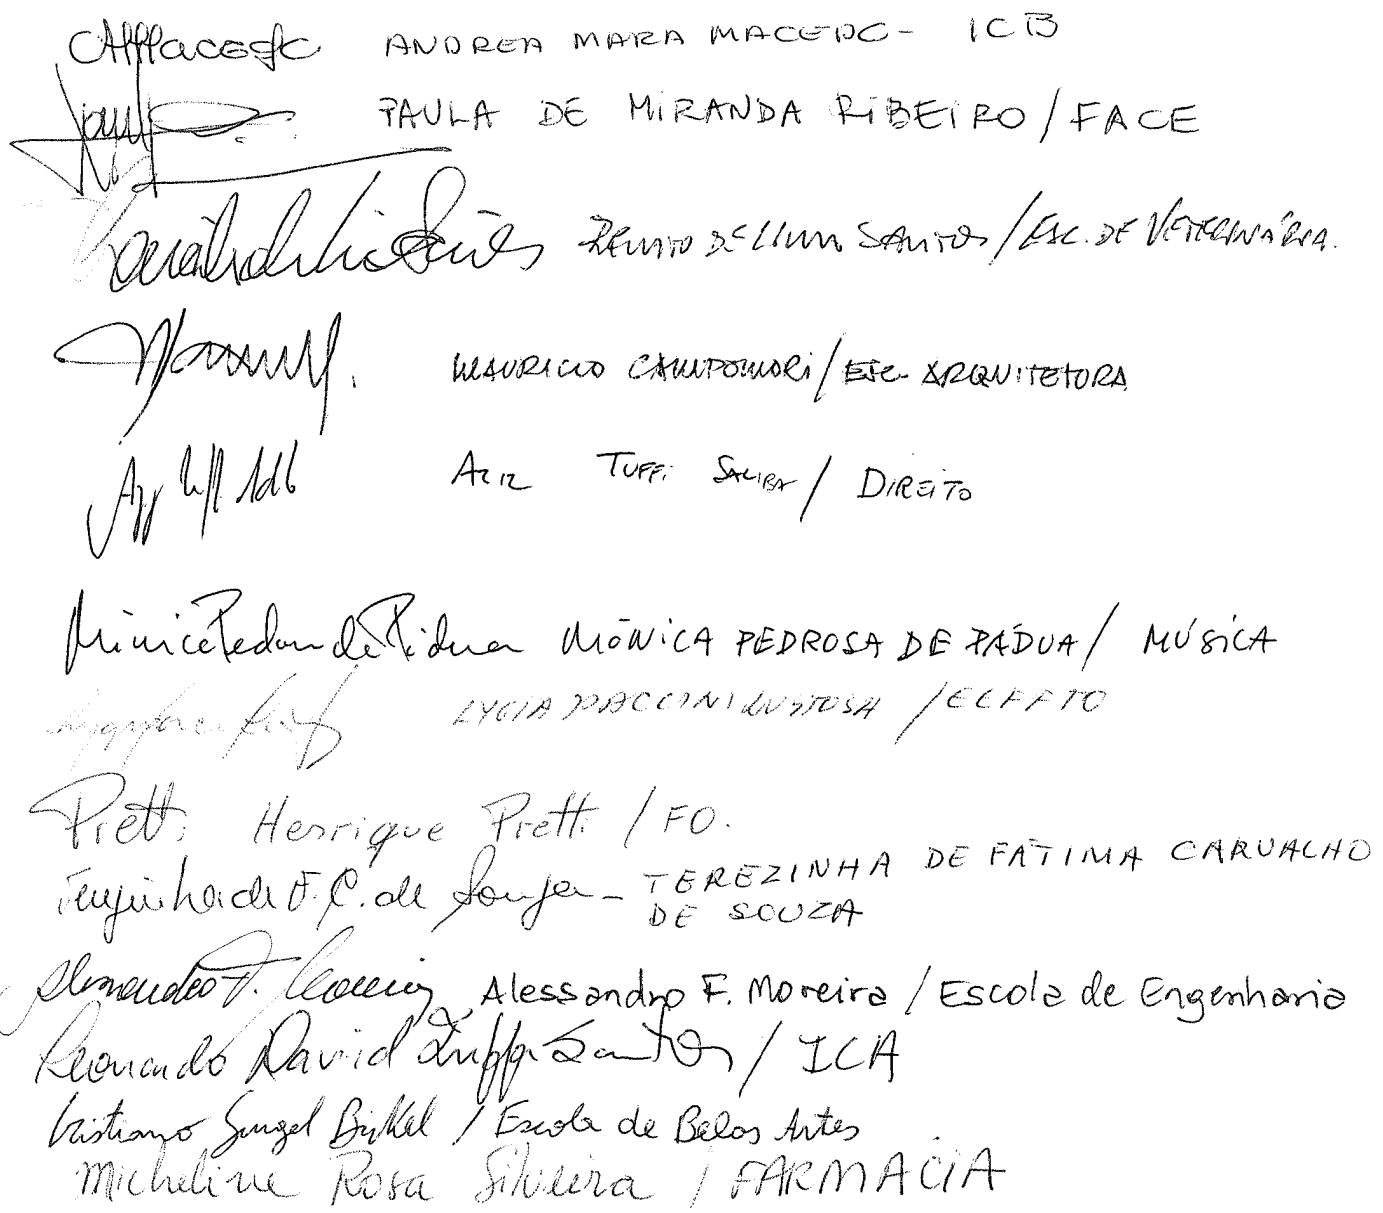 AMMacedo ANDREA MARA MACEDO - ICB
PAULA DE MIRANDA RIBEIRO / FACE
Renato de Lima Santos RENATO DE LIMA SANTOS / ESC. DE VETERINÁRIA.
MAURICIO CAMPOMORI / ESC. ARQUITETURA
AZIZ TUFFI SALIBA / DIREITO
Mônica Pedrosa de Pádua MÔNICA PEDROSA DE PÁDUA / MÚSICA
LYGIA PACCINI LUSTOSA / EEFFTO
Pretti Henrique Pretti / FO.
Terezinha de F. C. de Souza - TEREZINHA DE FÁTIMA CARVALHO
DE SOUZA
Alessandro F. Moreira Alessandro F. Moreira / Escola de Engenharia
Leonardo David Tuffi Santos / ICA
Cristiano Gurgel Bickel / Escola de Belas Artes
Micheline Rosa Silveira / FARMACIA